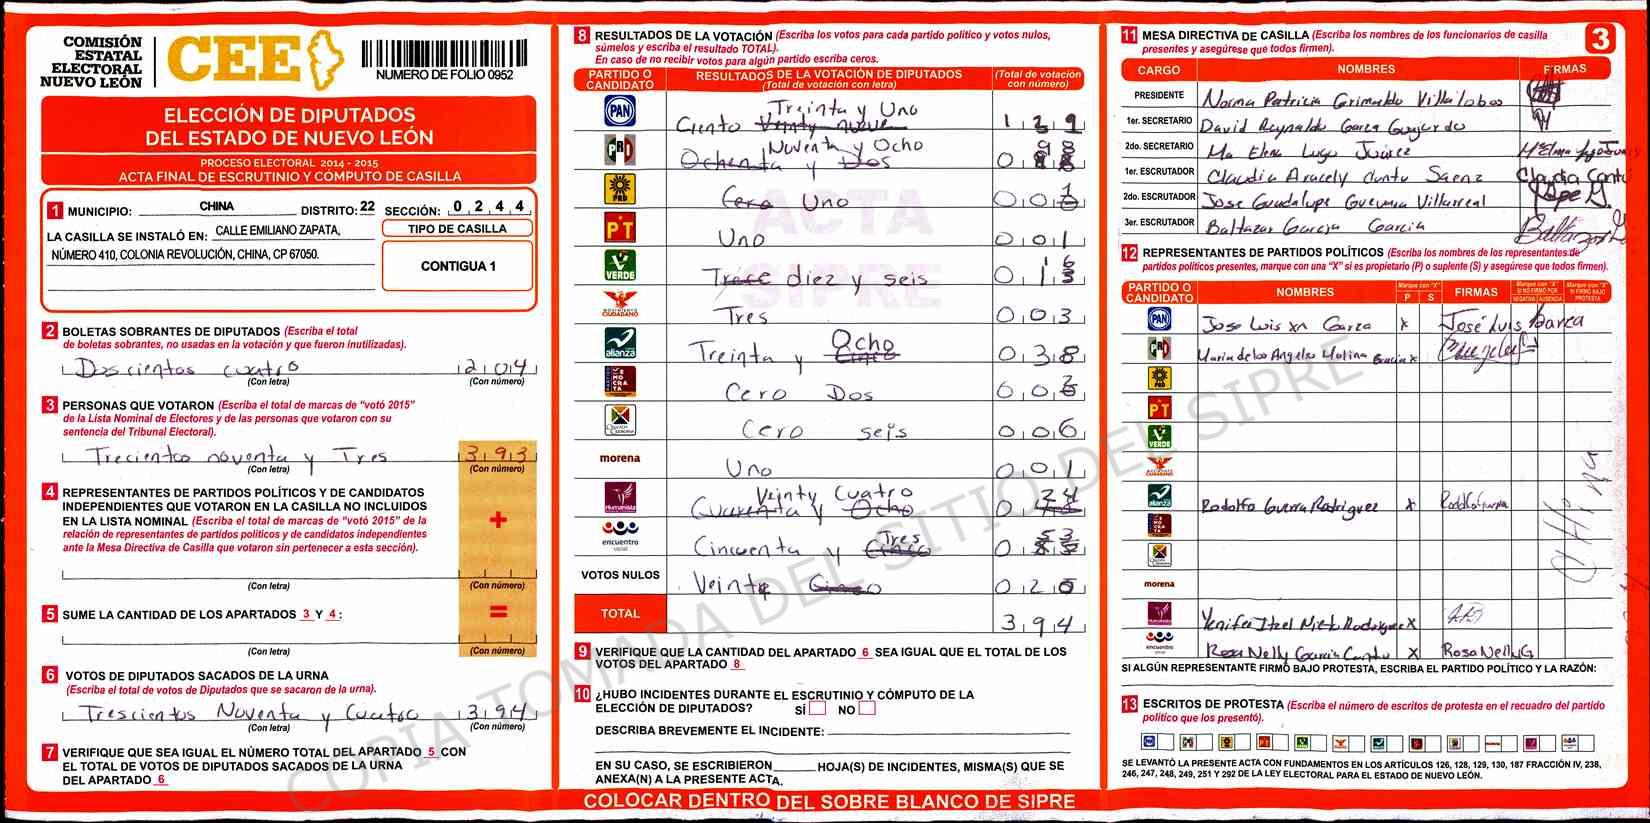 COMISIÓN
ESTATAL
ELECTORAL
NUEVO LEÓN
CEE
NUMERO DE FOLIO 0952
ELECCIÓN DE DIPUTADOS
DEL ESTADO DE NUEVO LEÓN
PROCESO ELECTORAL 2014 - 2015
ACTA FINAL DE ESCRUTINIO Y CÓMPUTO DE CASILLA
1 MUNICIPIO: CHINA DISTRITO: 22 SECCIÓN: 0 2 4 4
LA CASILLA SE INSTALÓ EN: CALLE EMILIANO ZAPATA,
NÚMERO 410, COLONIA REVOLUCIÓN, CHINA, CP 67050.
TIPO DE CASILLA
CONTIGUA 1
2 BOLETAS SOBRANTES DE DIPUTADOS (Escriba el total
de boletas sobrantes, no usadas en la votación y que fueron inutilizadas).
Doscientos cuatro 2 0 4
(Con letra) (Con número)
3 PERSONAS QUE VOTARON (Escriba el total de marcas de “votó 2015”
de la Lista Nominal de Electores y de las personas que votaron con su
sentencia del Tribunal Electoral).
Trecientos noventa y Tres 3 9 3
(Con letra) (Con número)
4 REPRESENTANTES DE PARTIDOS POLÍTICOS Y DE CANDIDATOS
INDEPENDIENTES QUE VOTARON EN LA CASILLA NO INCLUIDOS
EN LA LISTA NOMINAL (Escriba el total de marcas de “votó 2015” de la
relación de representantes de partidos políticos y de candidatos independientes
ante la Mesa Directiva de Casilla que votaron sin pertenecer a esta sección).
+
(Con letra) (Con número)
5 SUME LA CANTIDAD DE LOS APARTADOS 3 Y 4:
=
(Con letra) (Con número)
6 VOTOS DE DIPUTADOS SACADOS DE LA URNA
(Escriba el total de votos de Diputados que se sacaron de la urna).
Trescientos Noventa y Cuatro 3 9 4
(Con letra) (Con número)
7 VERIFIQUE QUE SEA IGUAL EL NÚMERO TOTAL DEL APARTADO 5 CON
EL TOTAL DE VOTOS DE DIPUTADOS SACADOS DE LA URNA
DEL APARTADO 6
8 RESULTADOS DE LA VOTACIÓN (Escriba los votos para cada partido político y votos nulos,
súmelos y escriba el resultado TOTAL).
En caso de no recibir votos para algún partido escriba ceros.
PARTIDO O CANDIDATO RESULTADOS DE LA VOTACIÓN DE DIPUTADOS (Total de votación con letra) (Total de votación con número)
PAN Treinta y Uno
Ciento Veinty nueve 1
PRD Noventa y Ocho 98
Ochenta y Dos 0
PRD Cero Uno 0 0 1
PT Uno 0 0 1
VERDE Trece diez y seis 0 1 6
MOVIMIENTO CIUDADANO Tres 0 0 3
alianza Ocho
Treinta y Cinco 0 3 8
DEMOCRATA Cero Dos 0 0 2
Cero seis 0 0 6
morena Uno 0 0 1
Humanista Veinty Cuatro 24
Cuarenta y Ocho 0
encuentro social Tres 53
Cincuenta y Cinco 0
VOTOS NULOS Veinte Cinco 0 2 0
TOTAL 3 9 4
ACTA
SIPRE
9 VERIFIQUE QUE LA CANTIDAD DEL APARTADO 6 SEA IGUAL QUE EL TOTAL DE LOS
VOTOS DEL APARTADO 8
10 ¿HUBO INCIDENTES DURANTE EL ESCRUTINIO Y CÓMPUTO DE LA
ELECCIÓN DE DIPUTADOS? SÍ NO
DESCRIBA BREVEMENTE EL INCIDENTE:
EN SU CASO, SE ESCRIBIERON HOJA(S) DE INCIDENTES, MISMA(S) QUE SE
ANEXA(N) A LA PRESENTE ACTA.
COLOCAR DENTRO DEL SOBRE BLANCO DE SIPRE
11 MESA DIRECTIVA DE CASILLA (Escriba los nombres de los funcionarios de casilla
presentes y asegúrese que todos firmen).
3
CARGO NOMBRES FIRMAS
PRESIDENTE Norma Patricia Grimaldo Villalobos
1er. SECRETARIO David Reynaldo Garza Guajardo
2do. SECRETARIO Ma Elena Lugo Juárez
1er. ESCRUTADOR Claudia Aracely Cantu Saenz Claudia Cantú
2do. ESCRUTADOR Jose Guadalupe Guerra Villarreal
3er. ESCRUTADOR Baltazar Garcia Garcia
12 REPRESENTANTES DE PARTIDOS POLÍTICOS (Escriba los nombres de los representantes de
partidos políticos presentes, marque con una “X” si es propietario (P) o suplente (S) y asegúrese que todos firmen).
PARTIDO O CANDIDATO NOMBRES Marque con “X” P S FIRMAS Marque con “X” SI NO FIRMÓ POR NEGATIVA AUSENCIA Marque con “X” SI FIRMÓ BAJO PROTESTA
PAN Jose Luis Garza x José Luis Garza
Maria de los Angeles Molina Garcia x
PRD
PT
VERDE
alianza Rodolfo Guerra Rodriguez x Rodolfo Guerra
morena
Yenifer Itzel Nieto Rodriguez X
encuentro social Rosa Nelly Garcia Cantu X Rosa Nelly G
SI ALGÚN REPRESENTANTE FIRMÓ BAJO PROTESTA, ESCRIBA EL PARTIDO POLÍTICO Y LA RAZÓN:
13 ESCRITOS DE PROTESTA (Escriba el número de escritos de protesta en el recuadro del partido
político que los presentó).
SE LEVANTÓ LA PRESENTE ACTA CON FUNDAMENTOS EN LOS ARTÍCULOS 126, 128, 129, 130, 187 FRACCIÓN IV, 238,
246, 247, 248, 249, 251 Y 292 DE LA LEY ELECTORAL PARA EL ESTADO DE NUEVO LEÓN.
COPIA TOMADA DEL SITIO DEL SIPRE